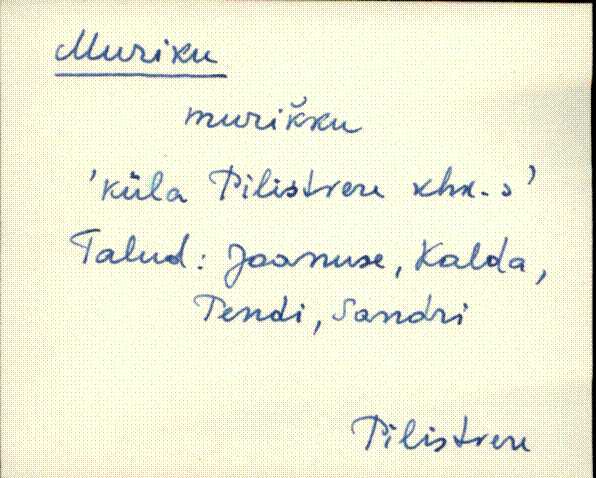 Muriku
murik̆ku
'küla Pilistvere khk.-s'
Talud: Jaanuse, Kalda,
Tendi, Sandri
Pilistvere